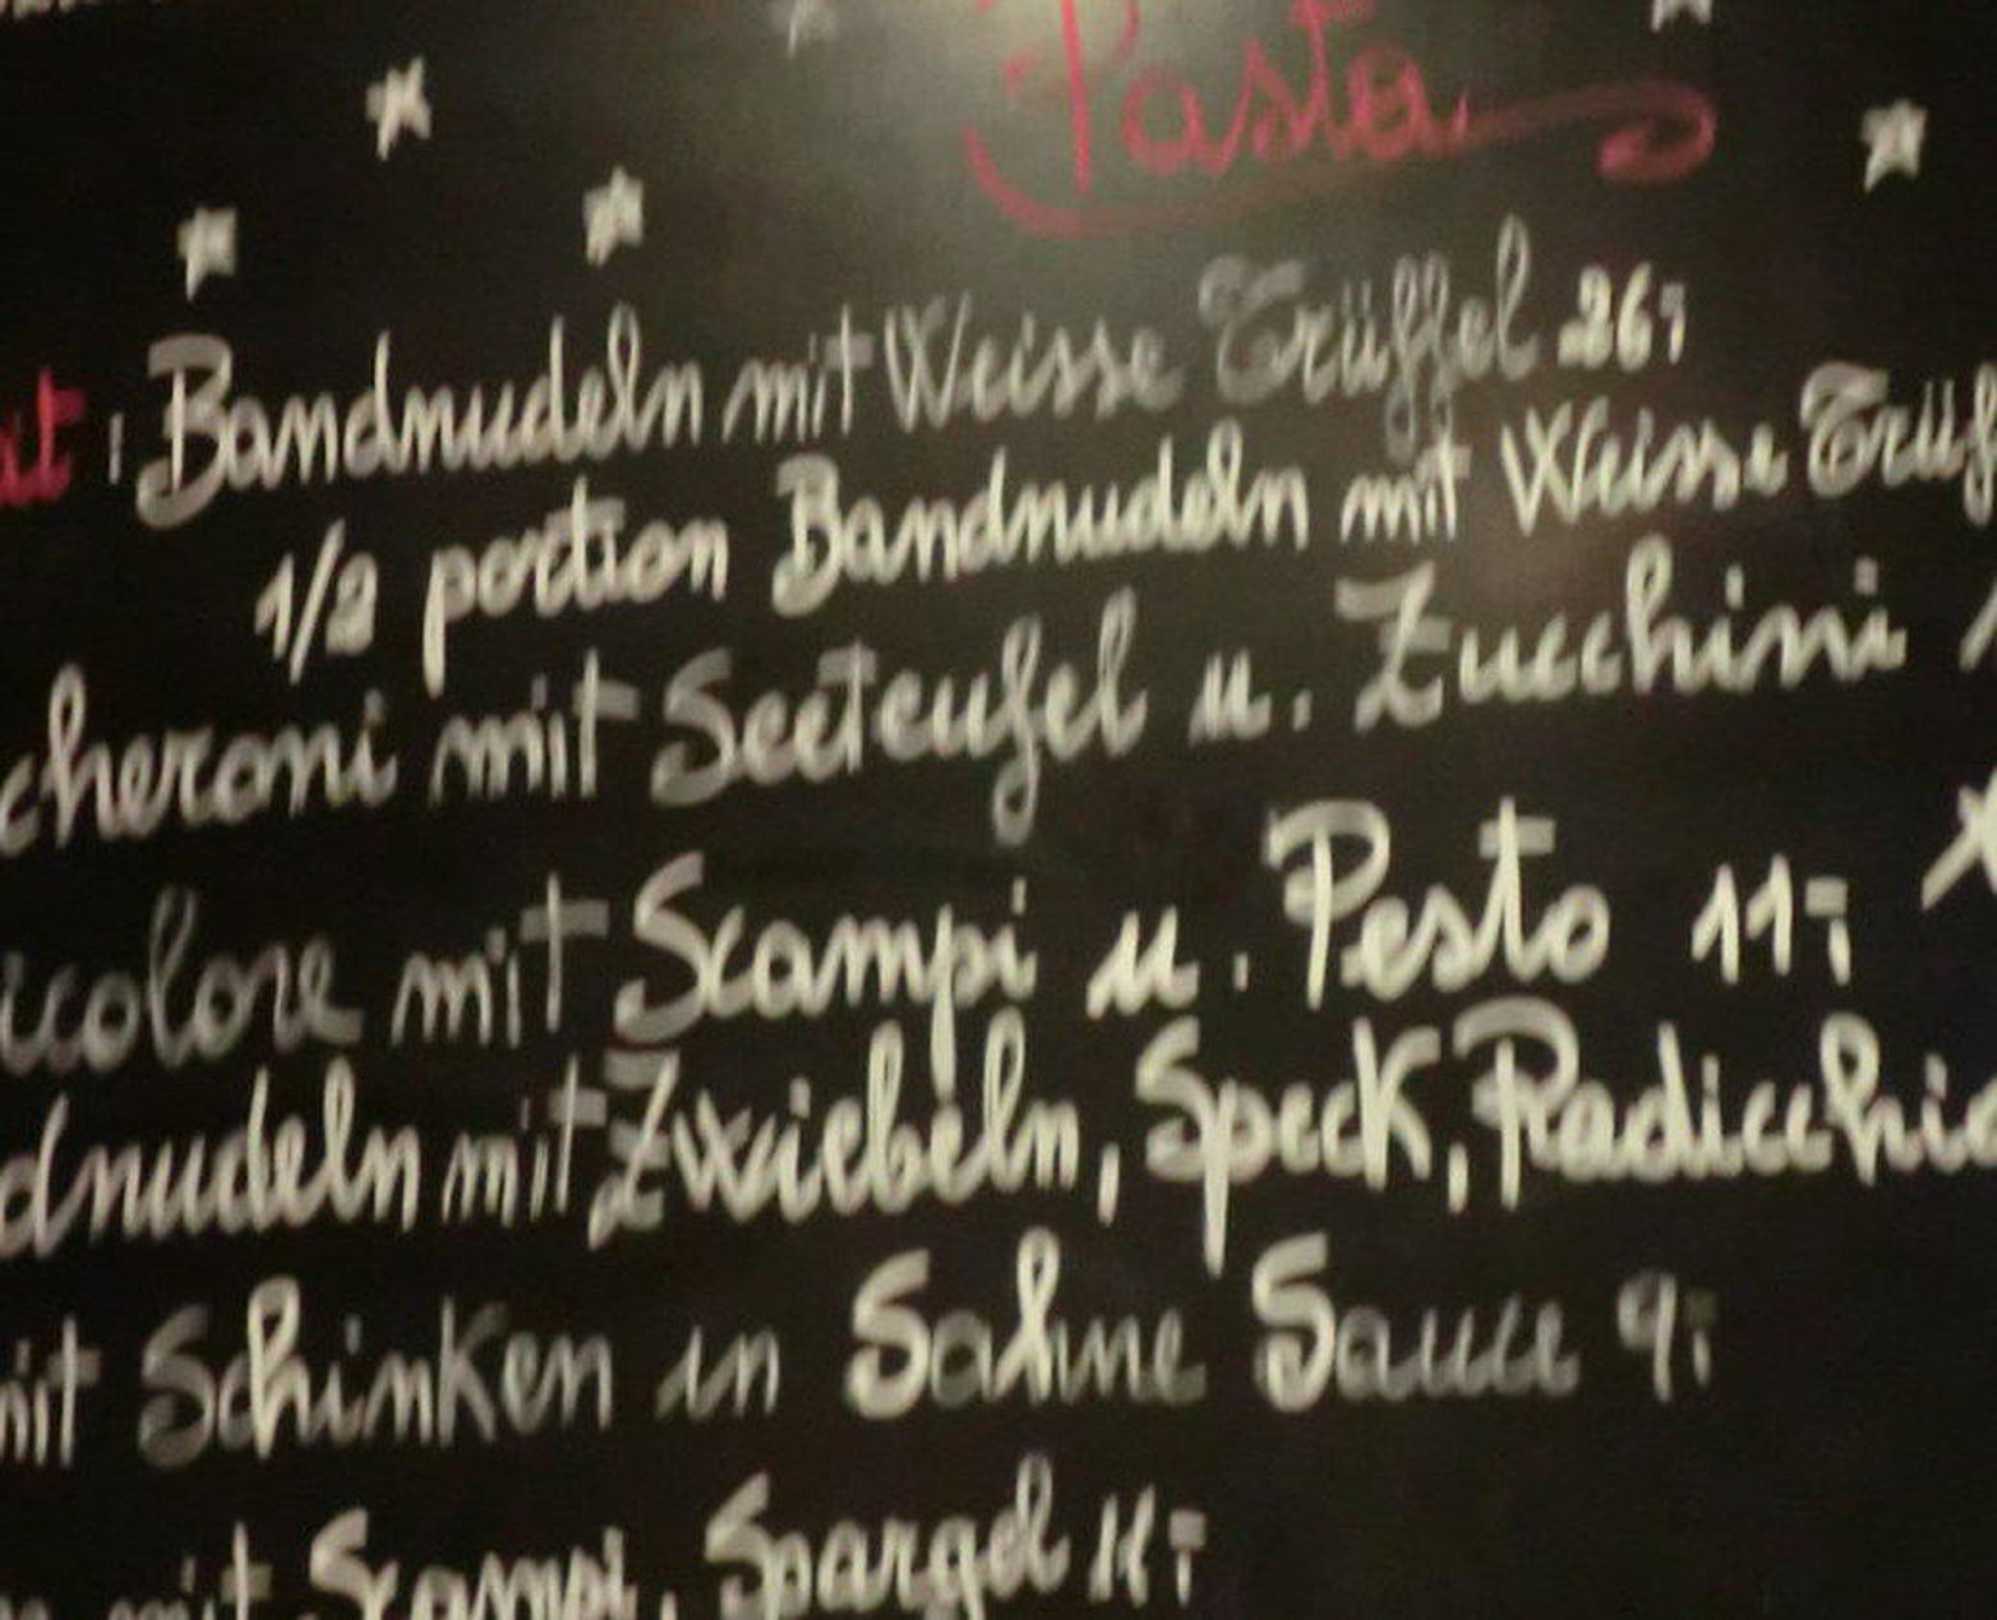 Pasta
: Bandnudeln mit Weisse Trüffel 26,-
1/2 portion Bandnudeln mit Weisse Trüf
cheroni mit Seeteufel u. Zucchini 1
icolore mit Scampi u. Pesto 11,-
dnudeln mit Zwiebeln, Speck, Radicchio
mit Schinken in Sahne Sauce 9,-
mit Scampi, Spargel 11,-